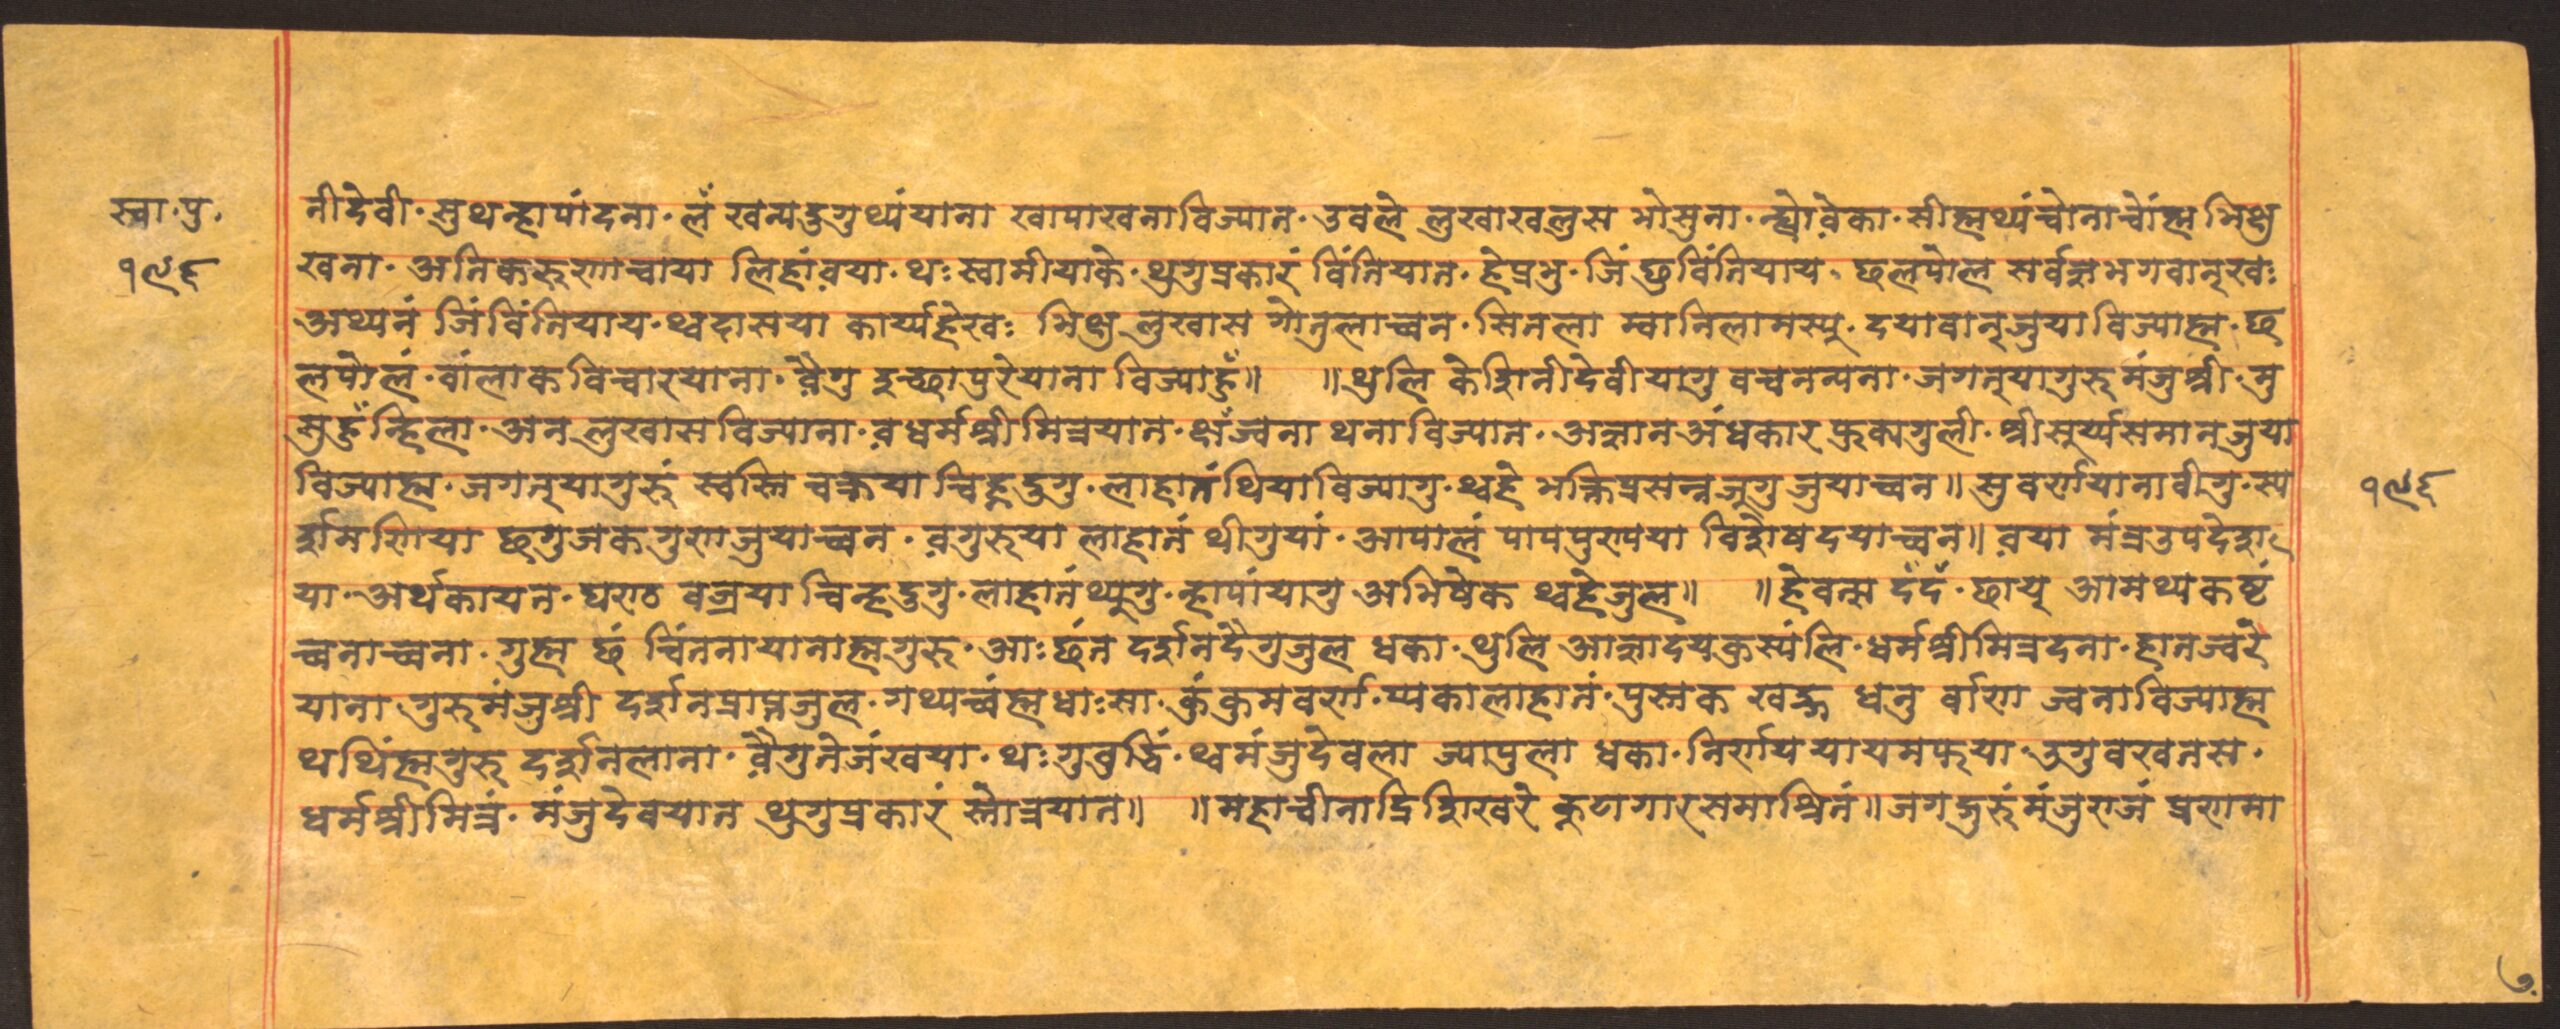 स्वा.पु.
१९६
नीदेवी॰सुथन्ह्रापांदना॰लँ खन्यदुगुथ्यंयाना खापाखनाविज्यात॰उवले लुखाखलुस भोसुना॰न्ह्योवेका॰सीह्मथ्यंच्वोनाच्वोंह्म भिक्षु
खना॰अतिकरुणाचाया लिहांवया॰थःस्वामीयाके॰थुगुप्रकारं विंतियात॰हेप्रभु॰जिं छुविंतियाय॰छलपोल सर्वज्ञभगवान्खः
अथ्यनं जिंविंतियाय॰थ्वदासया कार्य्यहेखः भिक्षु लुखास गोतुलाच्वन॰सितला म्वानिलामस्यू॰दयावान्जुयाविज्याह्म॰छ
लपोलं॰बांलाक विचारयाना॰वैगु इच्छापुरेयाना विज्याहुँ॥ ॥थुलि केशिनीदेवीयागु वचनन्यना॰जगत्यागुरु मंजुश्री॰मु
सुहुँन्हिला॰अन लुखासविज्याना॰वधर्मश्रीमित्रयात॰क्षँज्वना थनाविज्यात॰अज्ञानअंधकार फुकागुली॰श्रीसूर्य्यसमान्जुया
विज्याह्म॰जगत्यागुरुं स्वस्ति चक्रया चिह्नदुगु॰लाहातंथियाविज्यागु॰थ्वहे भक्तिप्रसन्नजूगुजुयाच्वन॥सुवर्णयानावीगु॰स्प
र्शमणिया छगुजकगुणजुयाच्वन॰वगुरुया लाहातं थीगुयां॰आपालं पापपुण्यया विशेषदयाच्वन॥वया मंत्रउपदेश
या॰अर्थकायत॰घण्ठ वज्रया चिन्हदुगु॰लाहातंथ्यूगु॰न्हापांयागु अभिषेक थ्वहेजुल॥ ॥हेवत्स दँदँ॰छाय् आमथ्यकष्टं
च्वनाच्वना॰गुह्म छं चिंतनायानाह्मगुरु॰आःछंत दर्शनदैगुजुल धका॰थुलि आज्ञादयकुस्यंलि॰धर्मश्रीमित्रदना॰हातज्वरे
याना गुरुमंजुश्री दर्शनप्राप्तजुल॰गथ्यच्वंह्मधाःसा॰कुंकुमवर्ण॰प्यकालाहातं॰पुस्तक खड्ग धनु र्वाण ज्वनाविज्याह्म
थथिंह्मगुरु दर्शनलाना॰वैगुतेजंखया॰थःगुवुद्धिं॰थ्वमंजुदेवला ज्यापुला धका॰निर्णययायमफया॰उगुवखतस॰
धर्मश्रीमित्रं॰मंजुदेवयात थुगुप्रकारं स्तोत्रयात॥ ॥महाचीनाद्रिशिखरे कूटागारसमाश्रितं॥जगद्गुरुंमंजुराजं प्रणमा
१९६